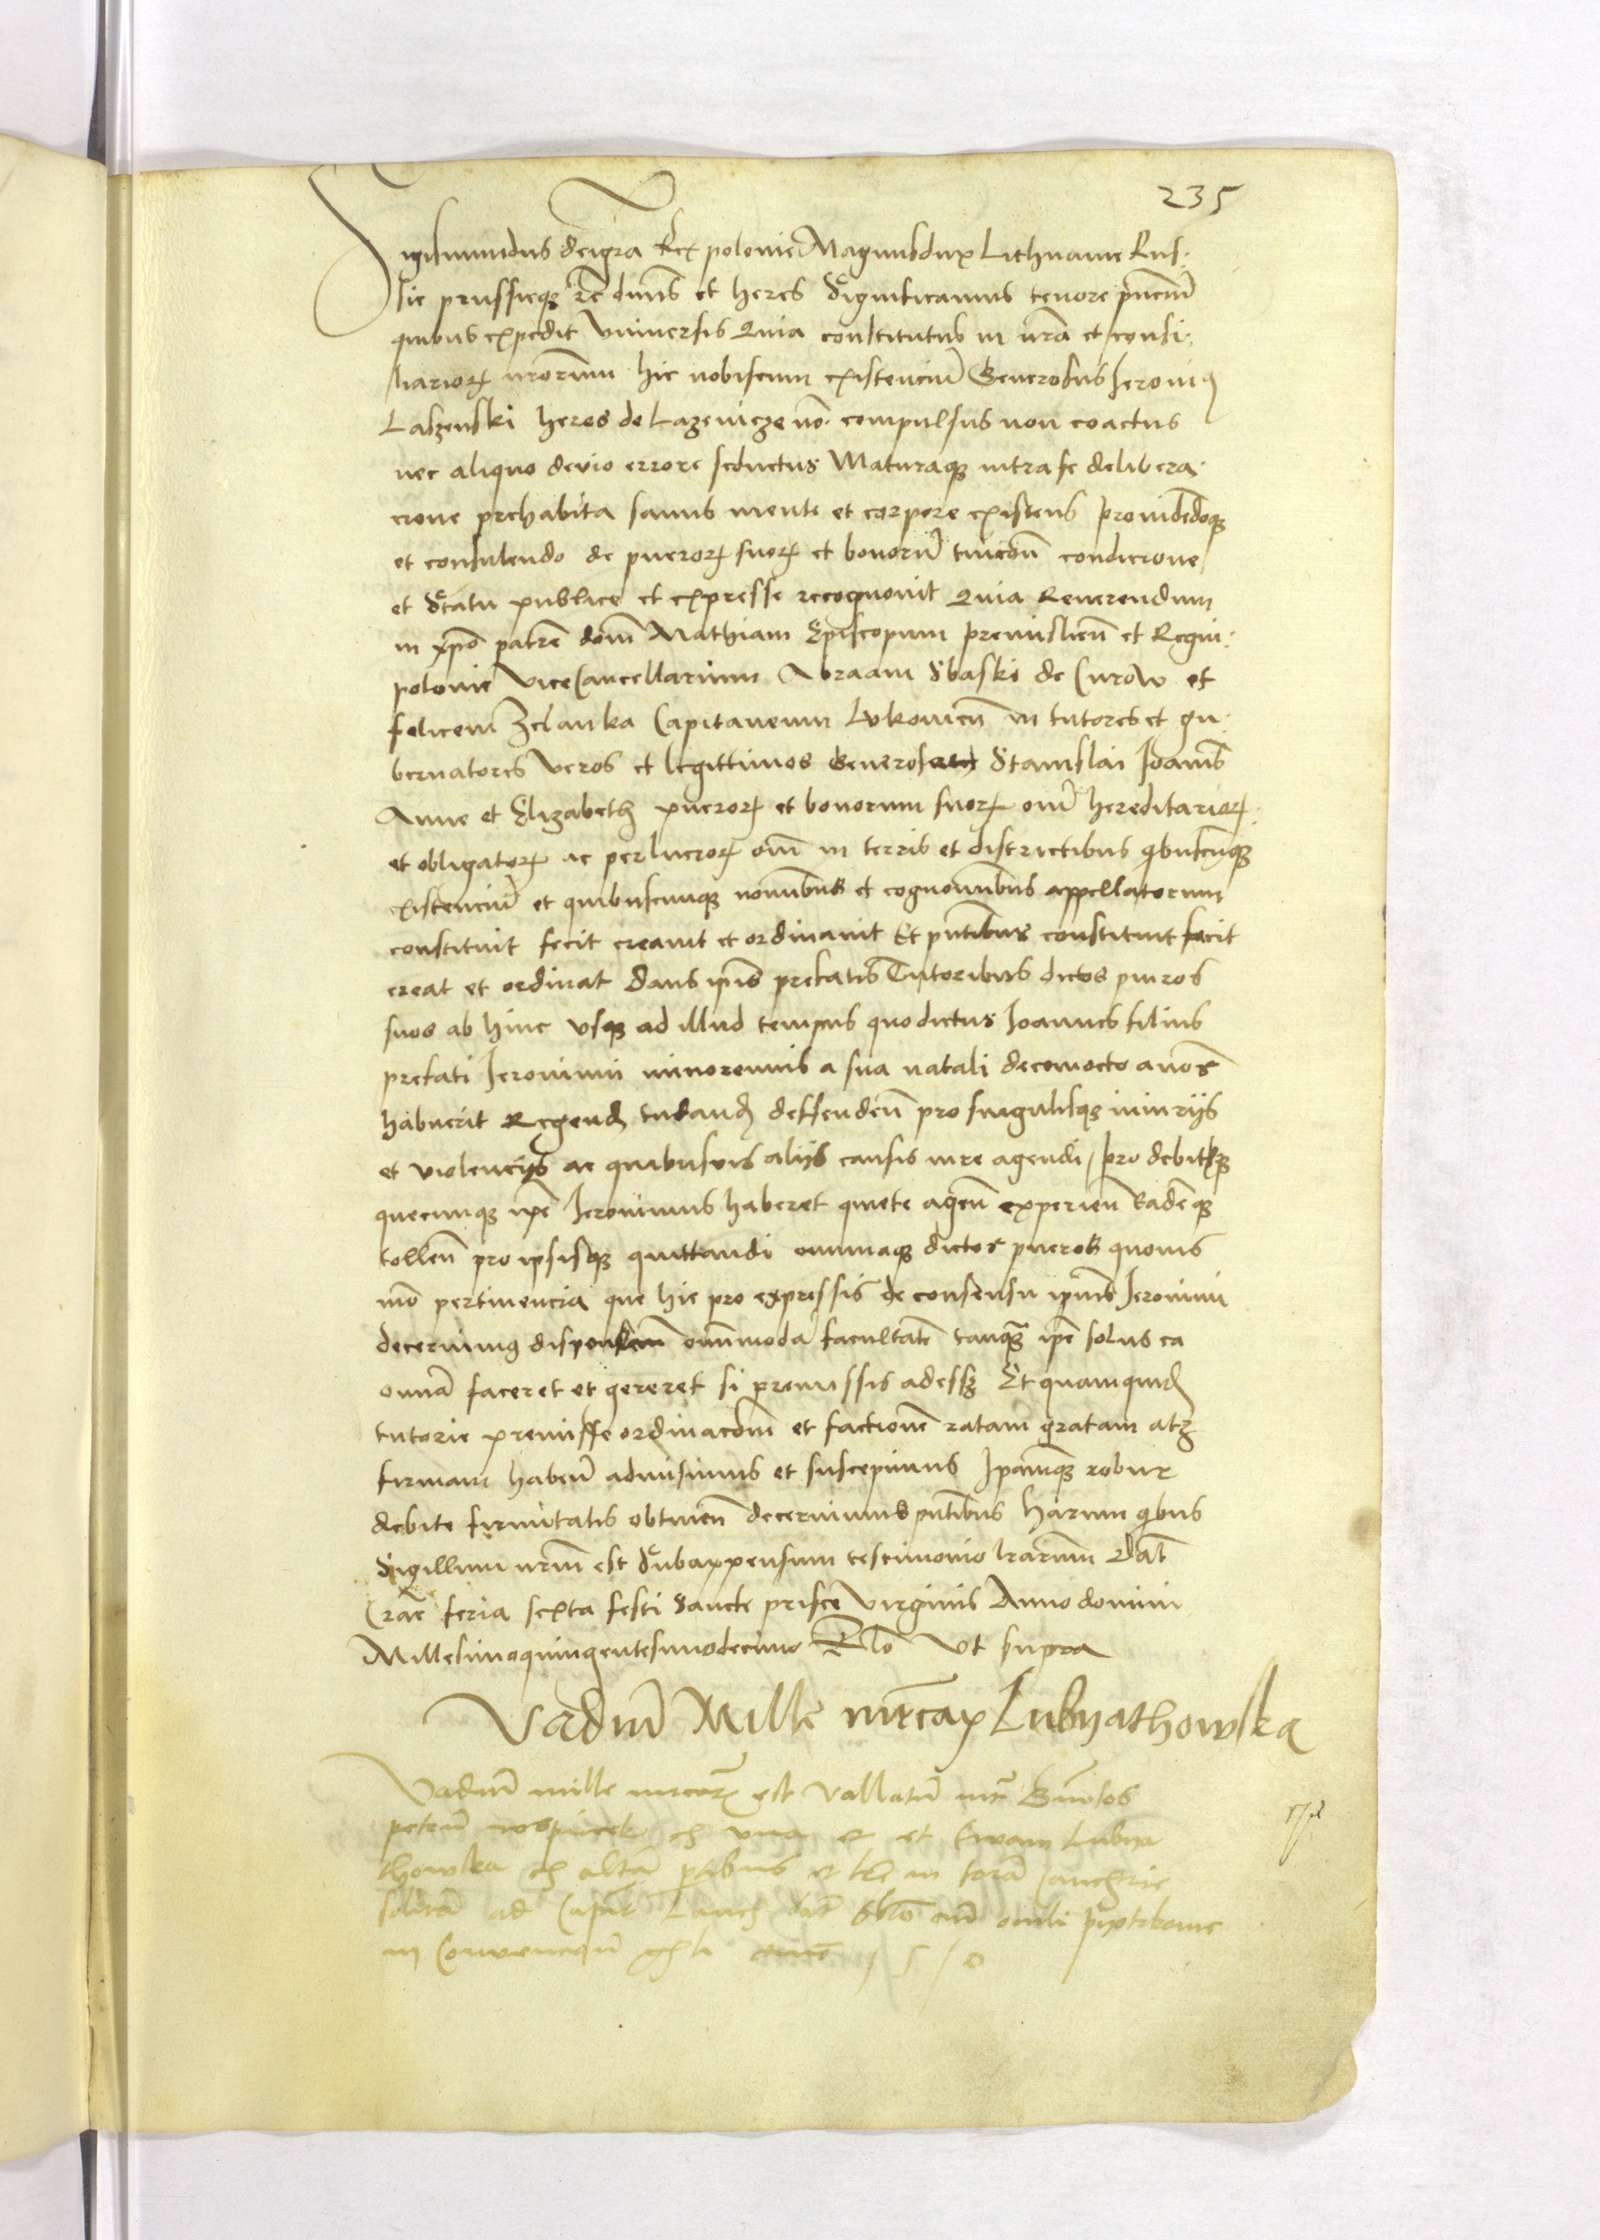 235
Sigismundus deigra Rex polonie Magnusdux Lithuanie Rus:
sie prussieqz etc dnus et heres Significamus tenore pncium
quibus expedit Vniversis Quia constitutus in nra et consi:
liarioru nrorum hic nobiscum existenciu Generosus Jeronim9
Laszenski heres de Lazenicze no compulsus non coactus
nec aliquo devio errore seductus Maturaqz intra se delibera:
cione prehabita sanus mente et corpore existens providedoqz
et consulendo de pueroru suoru et bonoru tuicioni condicione
et Statu publice et expresse recognovit Quia Reverendum
in xpo patre dom Mathiam Episcopum premislien et Regni:
polonie ViceCancellarium Abraam Sbaski de Curow et
felicem Zelanka Capitaneum Lukovien in tutores et gu:
bernatores veros et legittimos Generos Stanislai Joanis
Anne et Elizabeth pueroru et bonorum suoru oniu hereditarioru
et obligatoru ac perlucroru oniu in terris et districtibus qbuscuqz
existenciu et quibuscumqz nominibus et cognominibus appellatorum
constituit fecit creavit et ordinavit Et pntibus constituit facit
creat et ordinat Dans ipis prefatis Tutoribus dictos pueros
suos ab hinc vsqz ad illud tempus quo dictus Joannes filius
prefati Jeronimi minorennis a sua natali decemocto anos
habuerit Regend tutand deffenden pro singulisqz iniuriis
et violenciis ac quibusvis aliis causis iure agendi / pro debitisqz
quecumqz ipe Jeronimus haberet quiete agen experien eademqz
tollen pro ipsisqz quittandi omniaqz dictos pueros quovis
mo pertinencia que hic pro expressis de consensu ipius Jeronimi
decernimus disponen omnimoda facultate tanqz ipe solus ea
omnia faceret et gereret si premissis adessz Et quamquid
tutorie premisse ordinacom et factione ratam gratam atqz
firmam haben admisimus et suscepimus Ipamqz robur
debite firmitatis obtinen decernimus pntibus harum qbus
Sigillum nrm est Subappensum testimonio lrarum Dat
Crac feria sexta festi Sancte prisce Virginis Anno domini
Millesimoquingentesimodecimo Rlo Vt supra
Vadiu Mille mrcar Lubyathowska
Vadiu mille mrcar est Vallatu int Gnosos
petru ex vna et Ewam Lubya
thowska ex alta ptibus in Cancellrie
solita ad dat cum
in Convencione gnli 1510